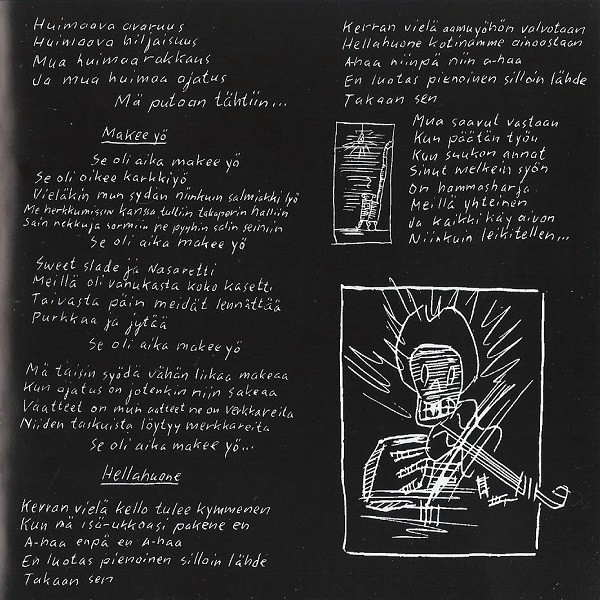 Huimaava avaruus
Huimaava hiljaisuus
Mua huimaa rakkaus
Ja mua huimaa ajatus
Mä putoan tähtiin...
Makee yö
Se oli aika makee yö
Se oli oikee karkkiyö
Vieläkin mun sydän niinkuin salmiakki lyö
Me herkkumisiin kanssa tultiin takaperin halliin
Sain nekkuja sormiin ne pyyhin salin seiniin
Se oli aika makee yö
Sweet slade ja Nasaretti
Meillä oli vanukasta koko kasetti
Taivasta päin meidät lennättää
Purkkaa ja jytää
Se oli aika makee yö
Mä taisin syödä vähän liikaa makeaa
Kun ajatus on jotenkin niin sakeaa
Vaatteet on mun aatteet ne on verkkareita
Niiden taskuista löytyy merkkareita
Se oli aika makee yö...
Hellahuone
Kerran vielä kello tulee kymmenen
Kun mä isä-ukkoasi pakene en
A-haa enpä en a-haa
En luotas pienoinen silloin lähde
Takaan sen
Kerran vielä aamuyöhön valvotaan
Hellahuone kotinamme ainoastaan
A-haa niinpä niin a-haa
En luotas pienoinen silloin lähde
Takaan sen
Mua saavut vastaan
Kun päätän työn
Kun suukon annat
Sinut melkein syön
On hammasharja
Meillä yhteinen
Ja kaikki käy aivan
Niinkuin leikitellen...